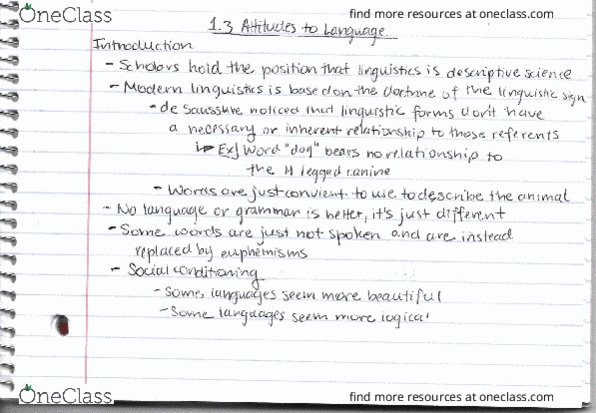 OneClass
find more resources at oneclass.com
1.3 Attitudes to Language
Introduction
- Scholars hold the position that linguistics is descriptive science
- Modern linguistics is based on the doctrine of the linguistic sign
- de Saussure noticed that linguistic forms don't have
a necessary or inherent relationship to those referents
↳ Ex] Word "dog" bears no relationship to
the 4 legged canine
- Words are just convient to use to describe the animal
- No language or grammar is better, it's just different
- Some words are just not spoken and are instead
replaced by euphemisms
- Social conditioning
- Some languages seem more beautiful
- Some languages seem more logical
OneClass
find more resources at oneclass.com